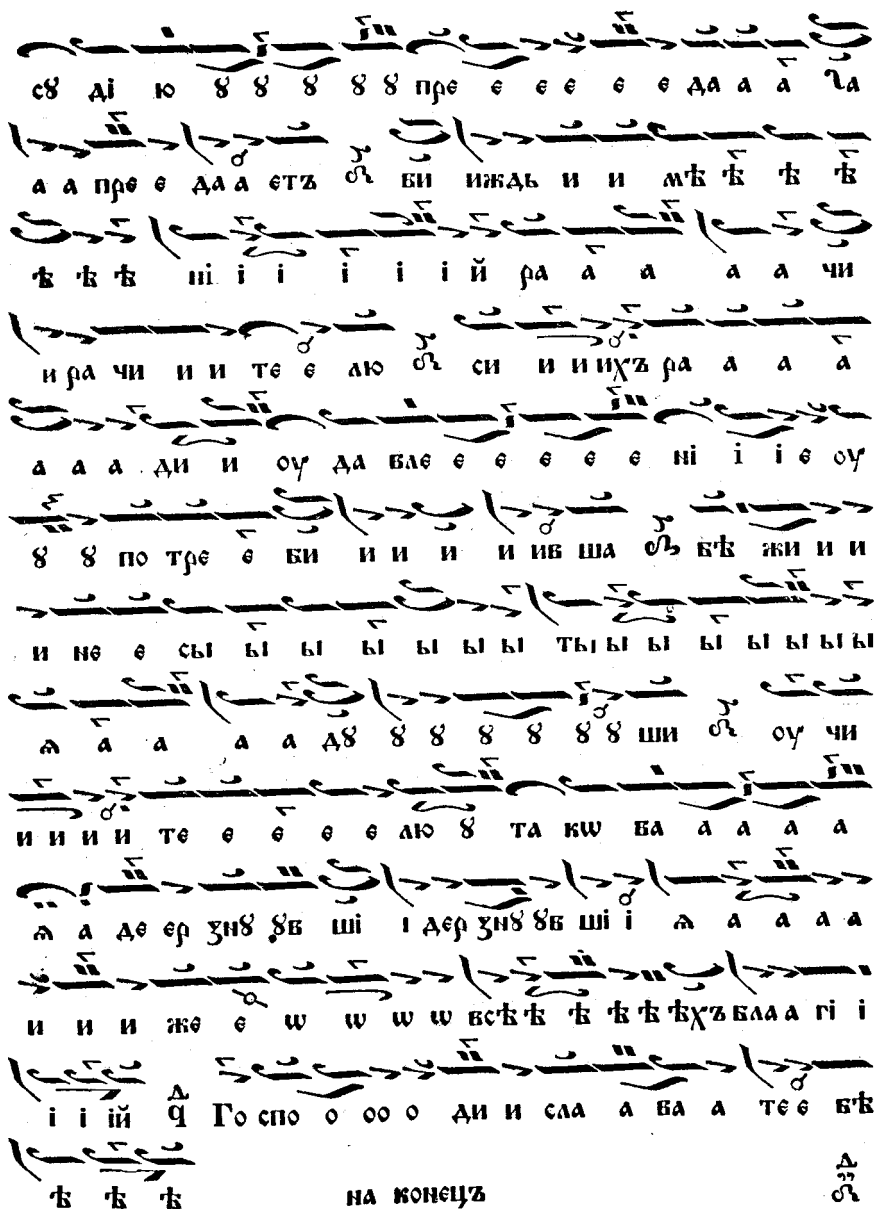 сꙋ ді ю ꙋ ꙋ ꙋ ꙋ ꙋ пре е е е е е да а а га
а а пре е да а етъ би иждь и и мѣ ѣ ѣ ѣ
ѣ ѣ ѣ ні і і і і і й ра а а а а чи
и ра чи и и те е лю си и и ихъ ра а а а а
а а а ди и оу да вле е е е е е ні і і е оу
ꙋ ꙋ по тре е би и и и и ив ша бѣ жи и и
и не е сы ы ы ы ы ы ы ты ы ы ы ы ы ы ы
ѧ а а а а дꙋ ꙋ ꙋ ꙋ ꙋ ꙋ ꙋ ши оу чи
и и и и те е е е е е лю ꙋ та кѡ ва а а а а
ѧ а де ер ꙁнꙋ ꙋв ші і дер ꙁнꙋ ꙋв ші і ѧ а а а а
и и и же е ѡ ѡ ѡ ѡ всѣ ѣ ѣ ѣ ѣ ѣхъ бла а гі і
і і ій д ч Го спо о оо о ди и сла а ва а те е бѣ
ѣ ѣ ѣ на конецъ д